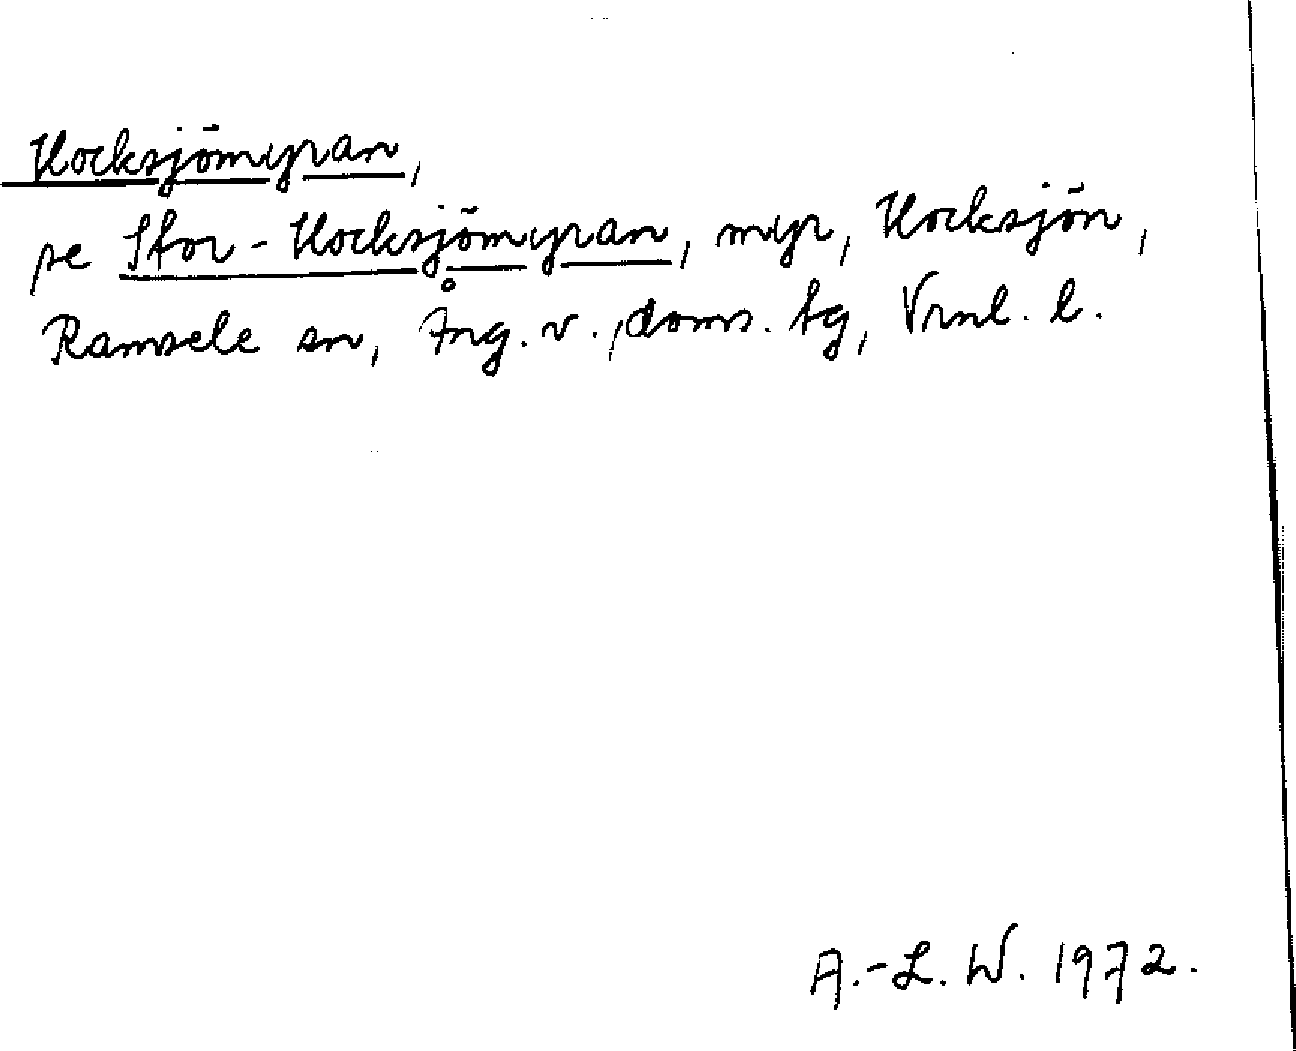 Hocksjömyran,
se Stor-Hocksjömyran, myr, Hocksjön,
Ramsele sn, Ång. v. doms. tg, Vrnl. l.
A.-L. W. 1972.